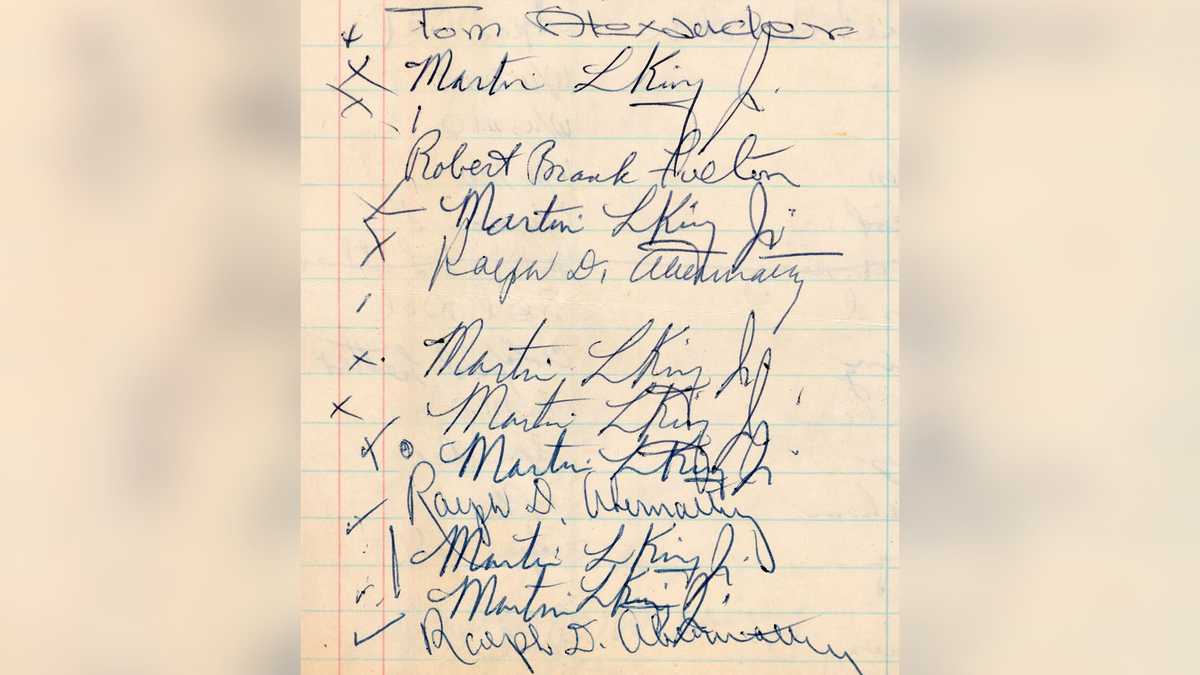 Tom Alexander
Martin L King Jr.
Robert Brank Fulton
Martin L King Jr.
Ralph D. Abernathy
Martin L King Jr
Martin L King Jr.
Martin L King Jr.
Ralph D. Abernathy
Martin L King Jr.
Martin L King Jr.
Ralph D. Abernathy